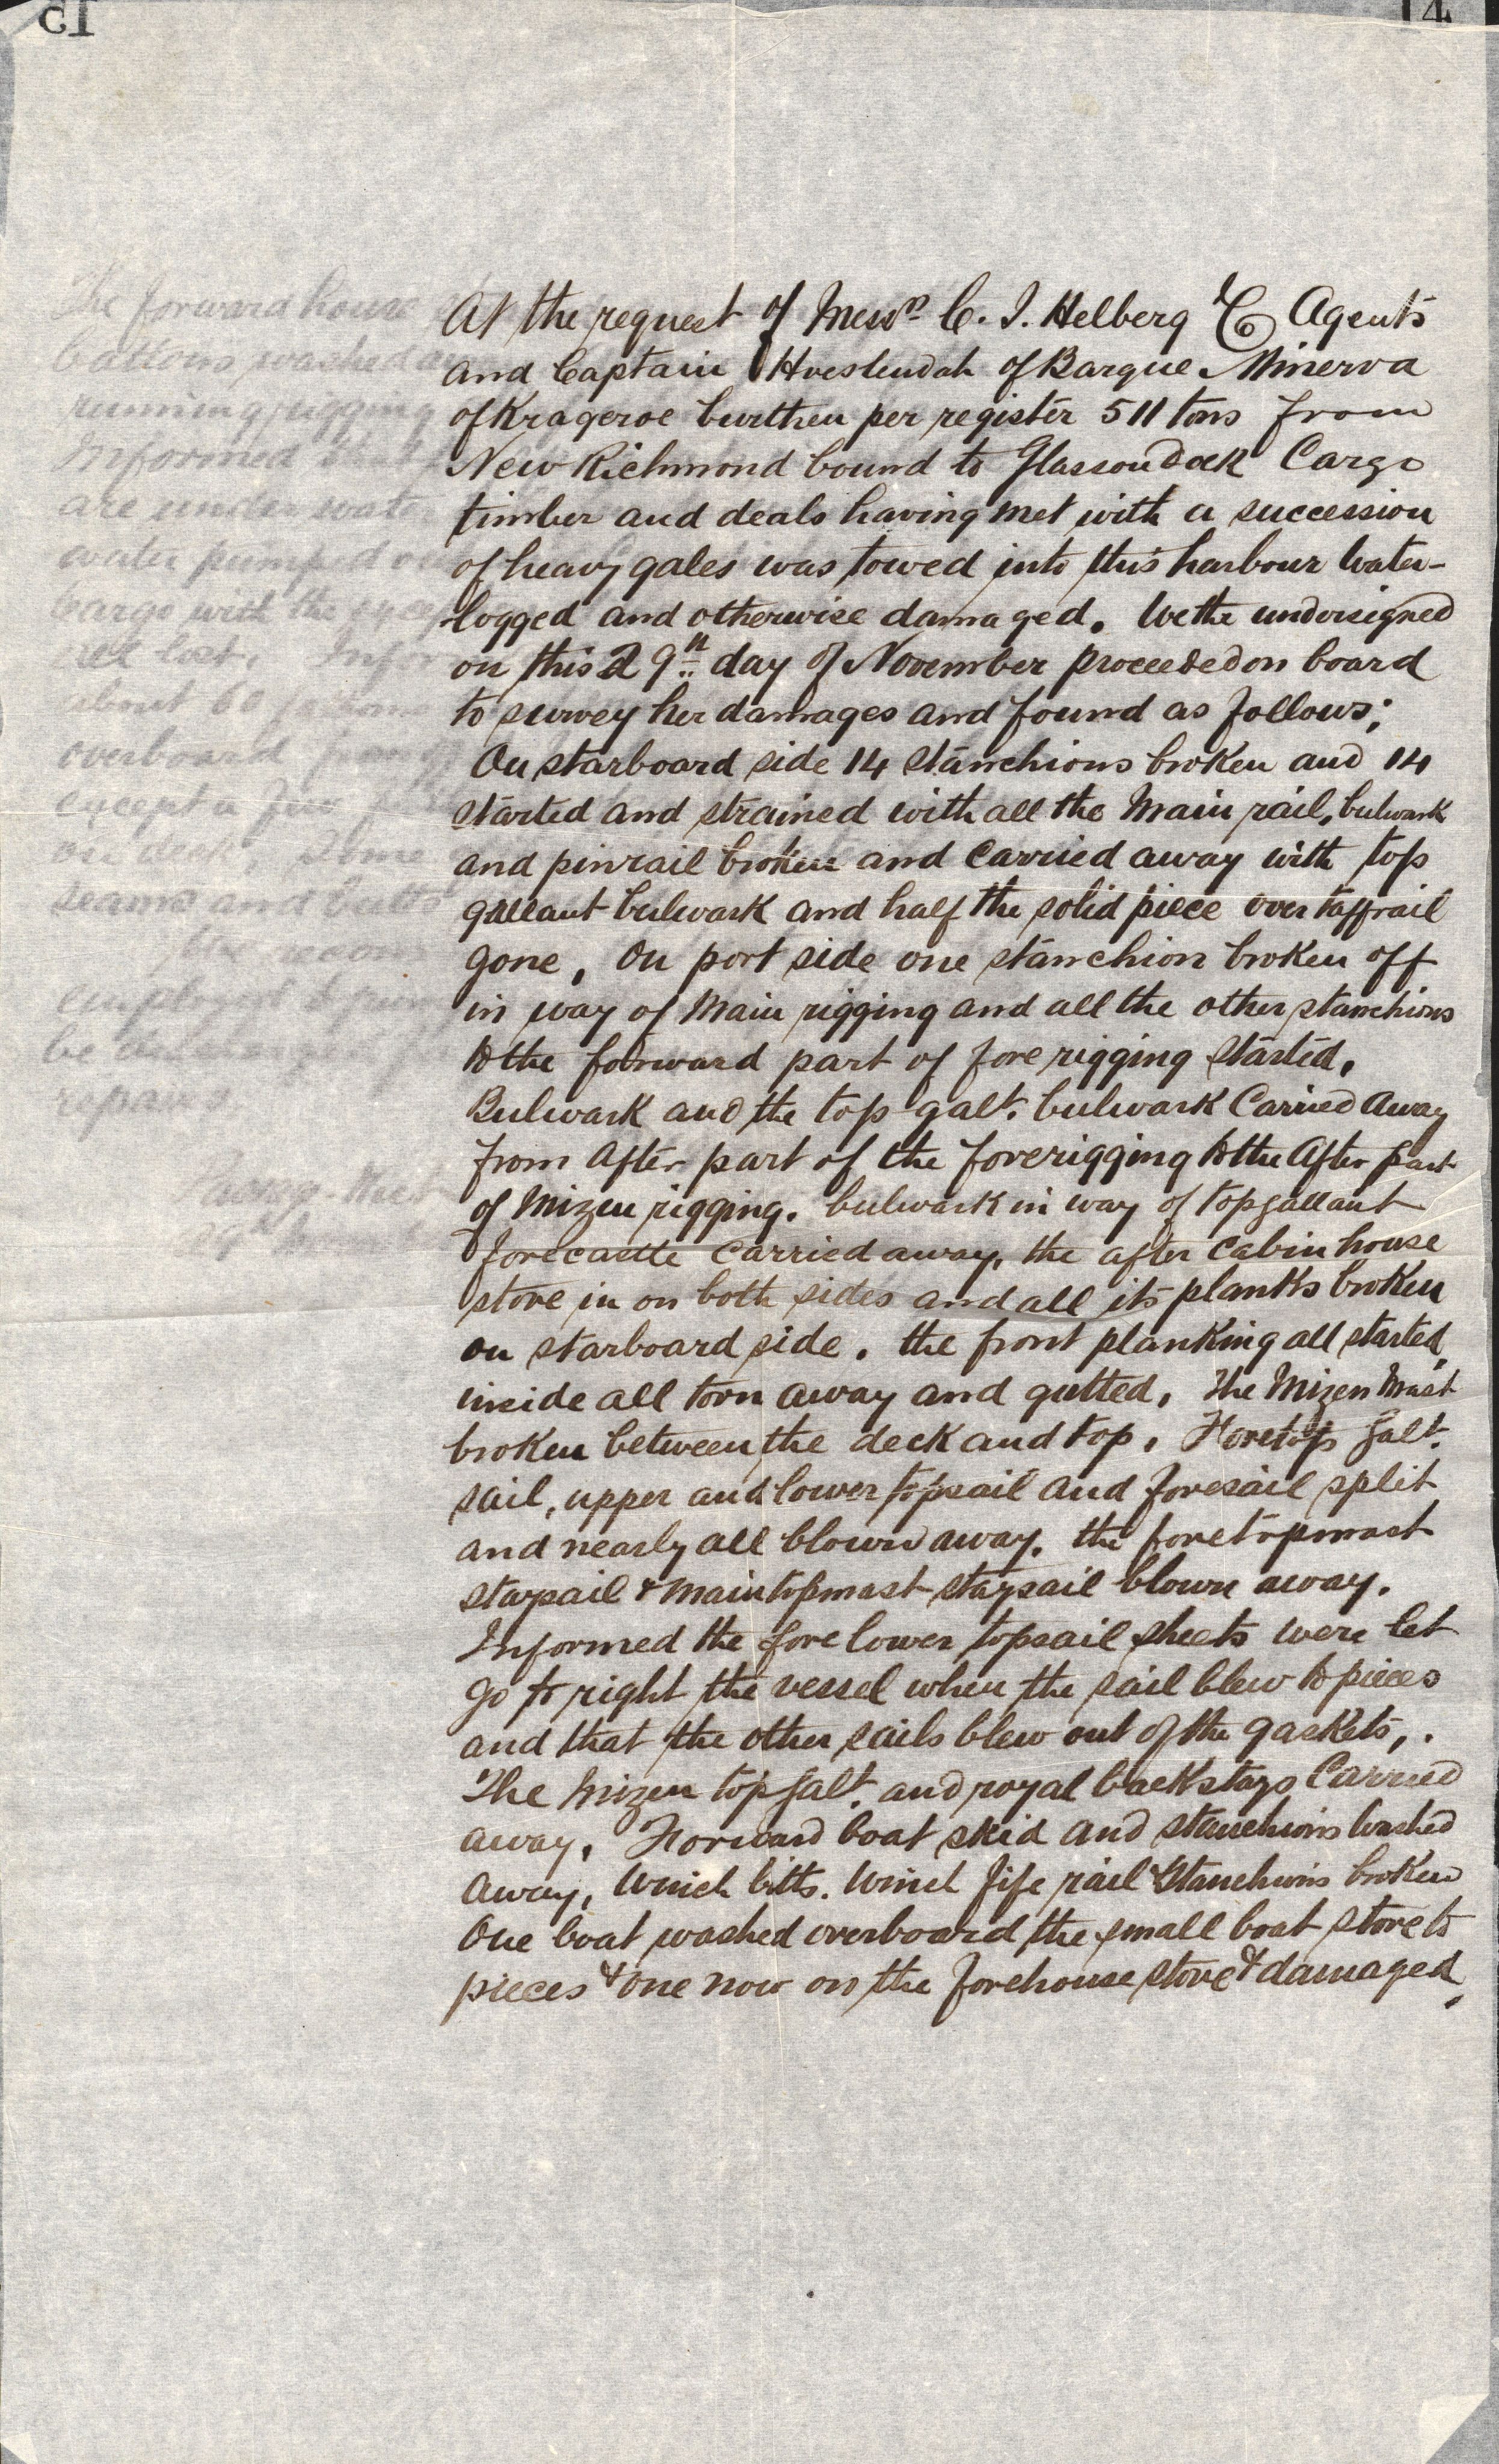 14
At the request of Messrs C. I. Helberg & Co Agents
and Captain of Barque Minerva
of Krageroe burthen per register 511 tons from
New Richmond bound to Glasson Dock Cargo
timber and deals having met with a succession
of heavy gales was towed into this harbour water-
logged and otherwise damaged. We the undersigned
on this 29th day of November proceeded on board
to survey her damages and found as follows;
On starboard side 14 stanchions broken and 14
started and strained with all the Main rail, bulwark
and pinrail broken and carried away with top
gallant bulwark and half the solid piece over taffrail
gone, On port side one stanchion broken off
in way of Main rigging and all the other stanchions
to the forward part of fore rigging started,
Bulwark and the top galt. bulwark Carried away
from After part of the forerigging to the After part
of Mizen rigging. bulwark in way of topgallant
forecastle carried away, the after cabin house
stove in on both sides and all its planks broken
on starboard side. the front planking all started,
inside all torn away and gutted, The Mizen Mast
broken between the deck and top, Foretop galt.
sail, upper and lower topsail and foresail split
and nearly all blown away. the foretopmast
staysail & maintopmast staysail blown away.
Informed the fore lower topsail sheets were let
go to right the vessel when the sail blew to pieces
and that the other sails blew out of the gaskets,.
The Mizen top galt. and royal backstays Carried
away, Forward boat skid and stanchions washed
away, Winch bitts. Winch fife rail & Stanchions broken
One boat washed overboard the small boat stove to
pieces & one now on the forehouse stove & damaged.
The forward house
washed
running rigging
Informed
are under water
water pumped
cargo with the
lost. Infor
about 60
overboard
except a few
on deck. Some
seams and butts
We recom
employed
be
repairs